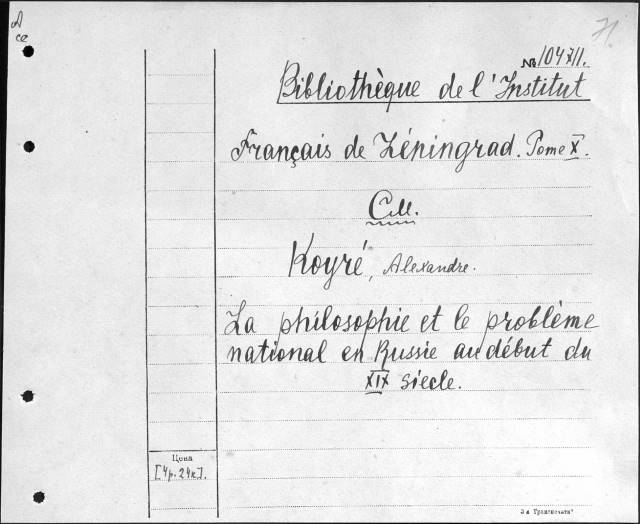 A
ce
71.
№ 104711.
Bibliothèque de l'Institut
Français de Léningrad. Tome X.
См.
Koyré, Alexandre.
La philosophie et le problème
national en Russie au début du
XIX siecle.
Цена
[4р.24к].
3-я Транспечати"